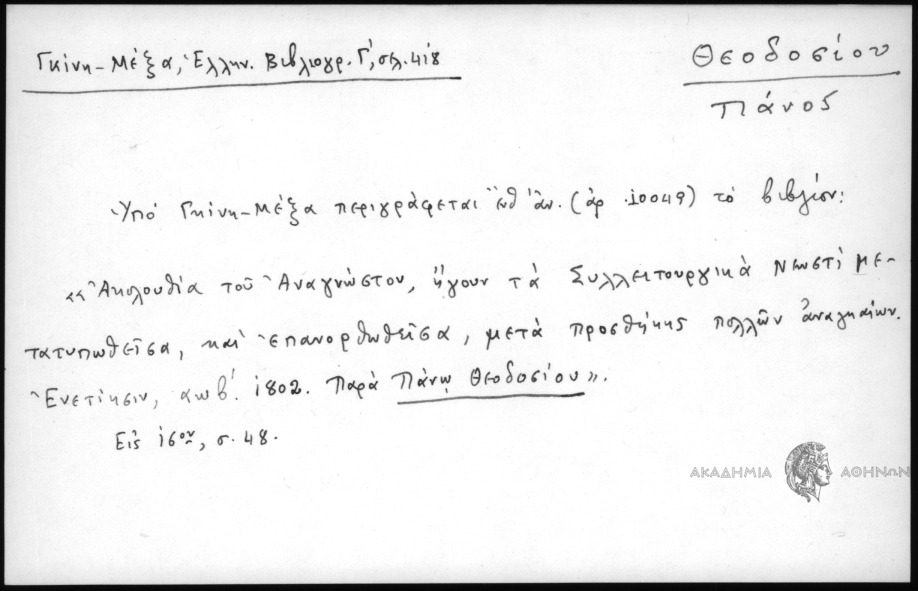 Γκίνη - Μέξα, Ἑλλην. Βιβλιογρ. Γ', σελ. 418
Θεοδοσίου
Πάνος
Ὑπό Γκίνη - Μέξα περιγράφεται (ἀρ. 10049) τό βιβλίον:
«Ἀκολουθία τοῦ Ἀναγνώστου, ἤγουν τά Συλλειτουργικά Νεωστί με-
τατυπωθεῖσα, καί ἐπανορθωθεῖσα, μετά προσθήκης πολλῶν ἀναγκαίων.
Ἐνετίησιν, αωβ'. 1802. Παρά Πάνῳ Θεοδοσίου».
Εἰς 16ον, σ. 48.
ΑΚΑΔΗΜΙΑ ΑΘΗΝΩΝ